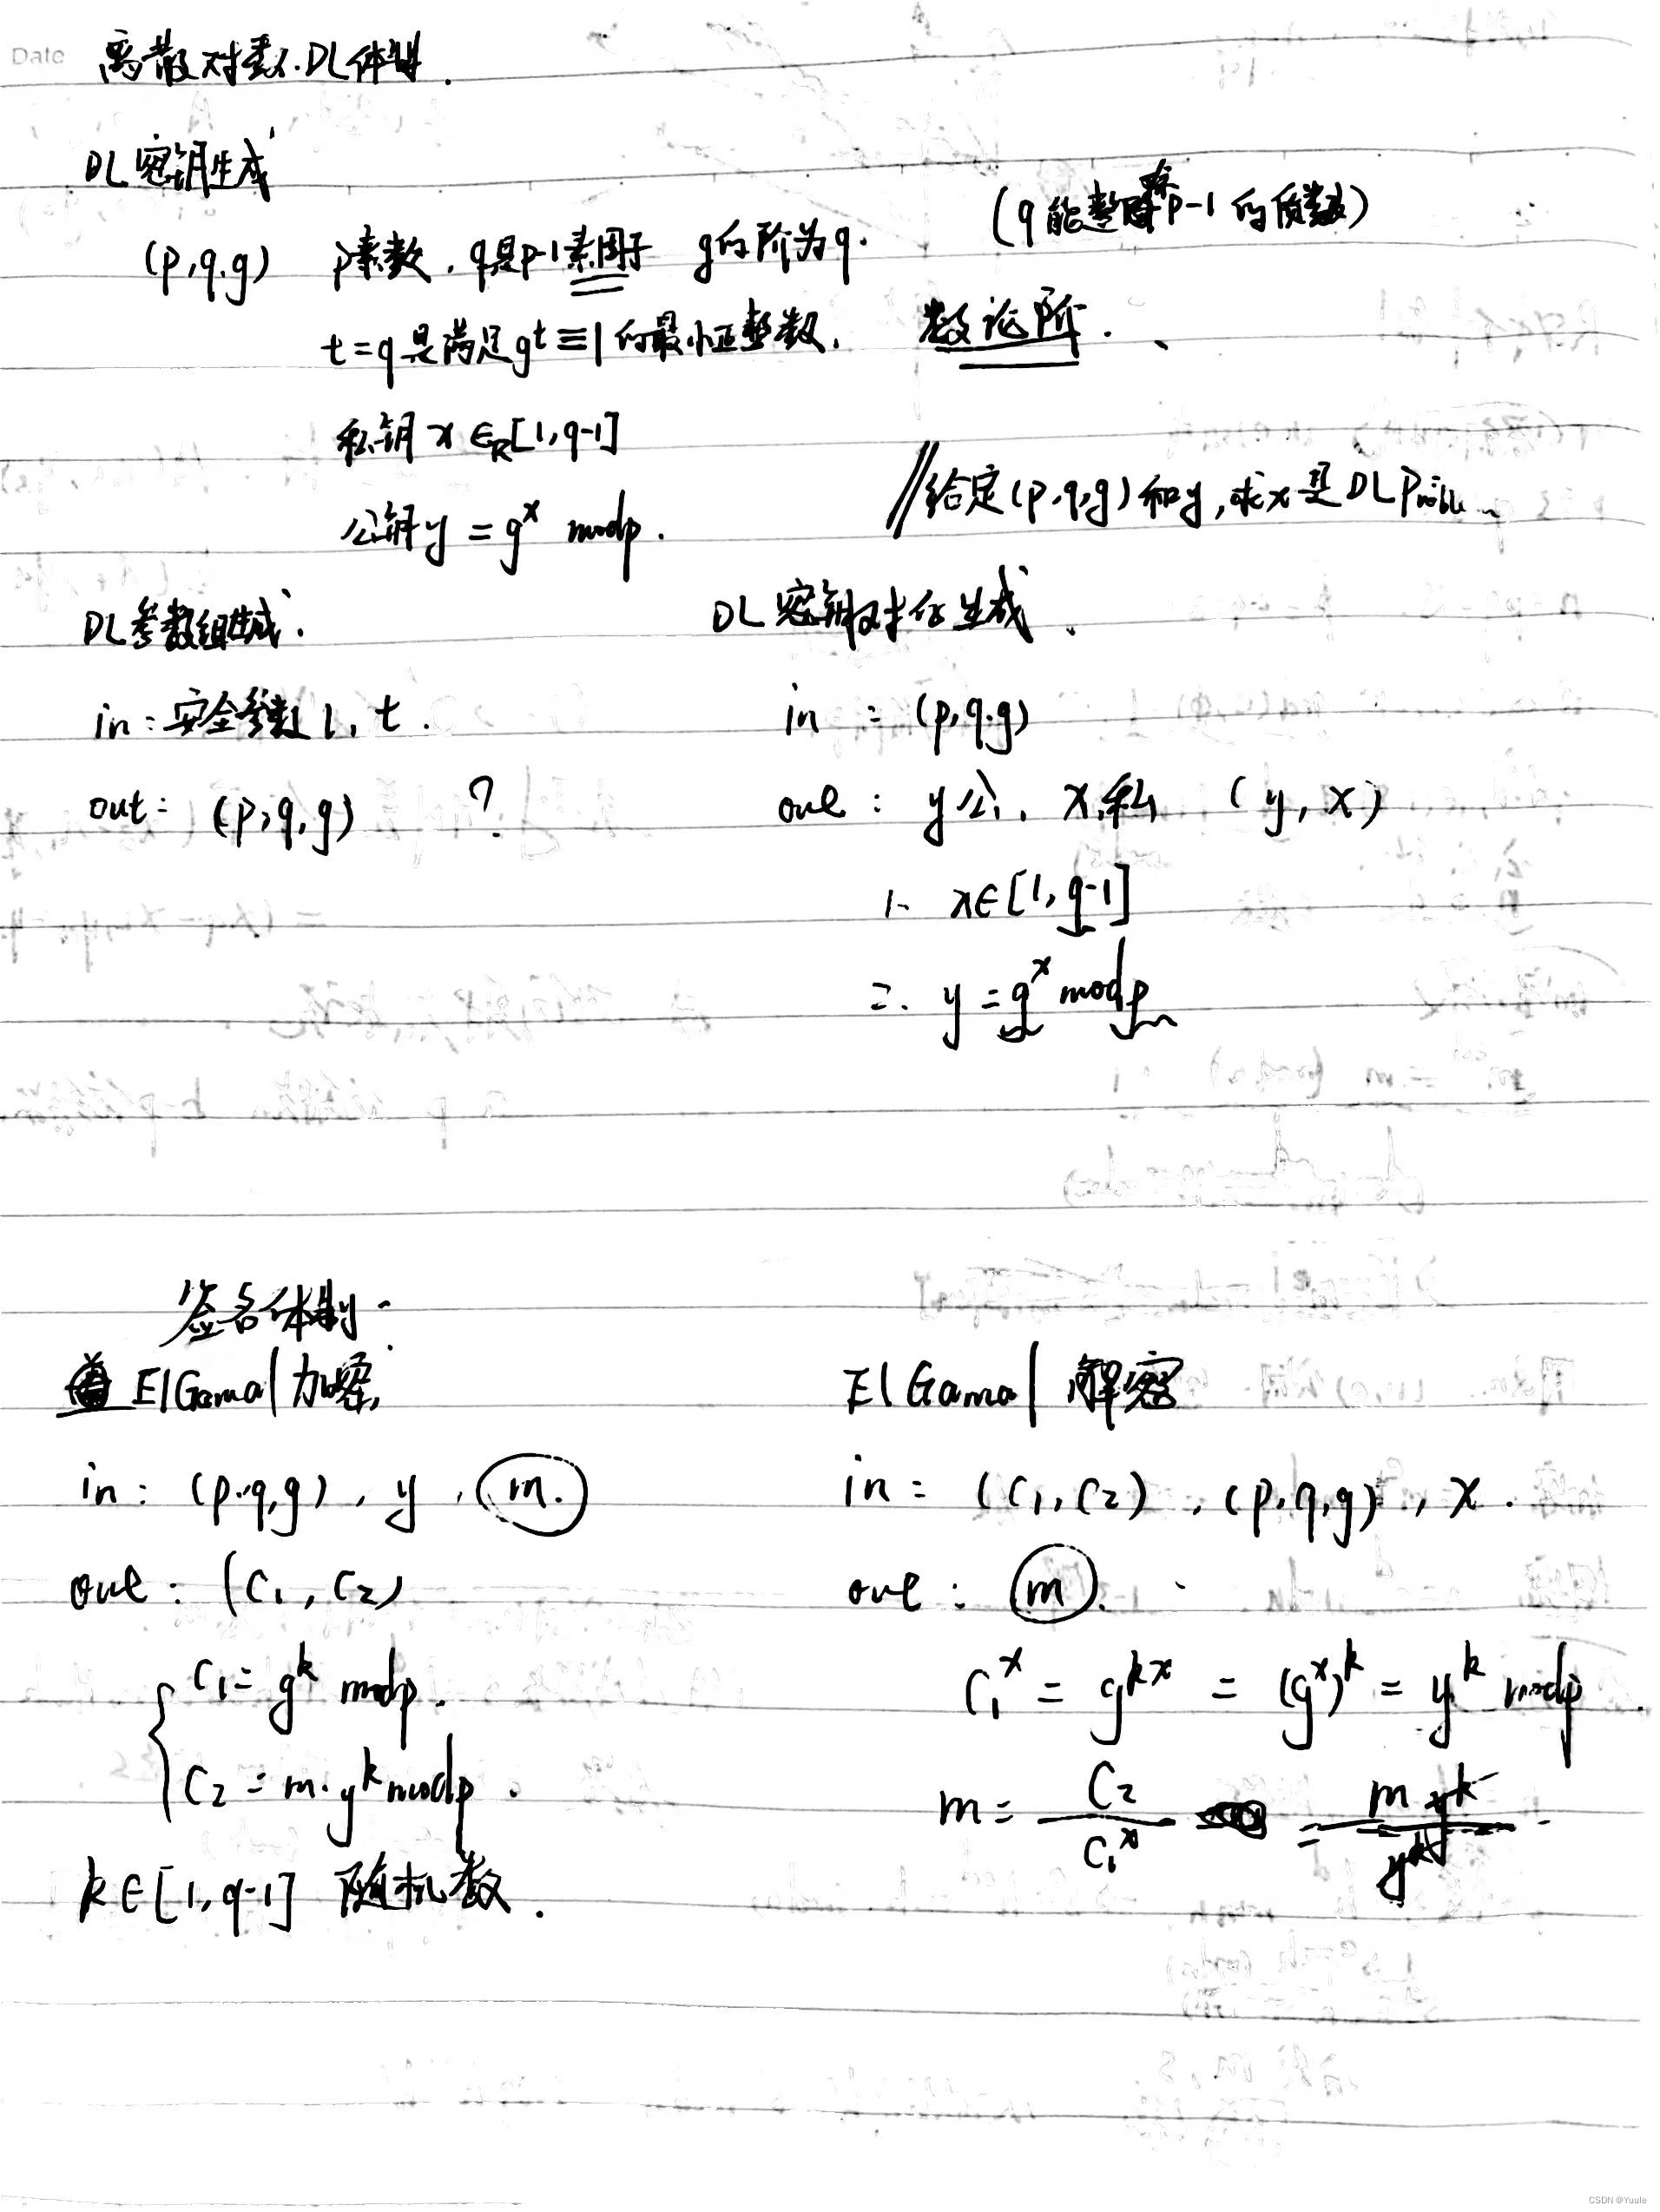 Date
离散对数.DL体制.
DL密钥生成
(q能整除p-1的质数)
(p,q,g) p素数,q是p-1素因子 g的阶为q.
t=q是满足g^t≡1的最小正整数, 数论阶.
私钥 x ∈_R [1,q-1]
//给定(p,q,g)和y,求x是DL
公钥y = g^x modp.
DL参数组生成.
in: 安全参数 l, t.
out: (p,q,g) ?
DL密钥对的生成.
in : (p,q,g)
out : y公, x私 (y, x)
1. x∈[1,q-1]
2. y = g^x modp
签名体制.
ElGamal加密,
in: (p,q,g), y, m.
out: (c1, c2)
c1= g^k modp.
c2 = m·y^k modp.
k∈[1,q-1] 随机数.
ElGamal 解密
in: (c1,c2), (p,q,g), x.
out: m.
c1^x = g^kx = (g^x)^k = y^k modp
m= c2/c1^x = m y^k/y^k
CSDN @Yuule